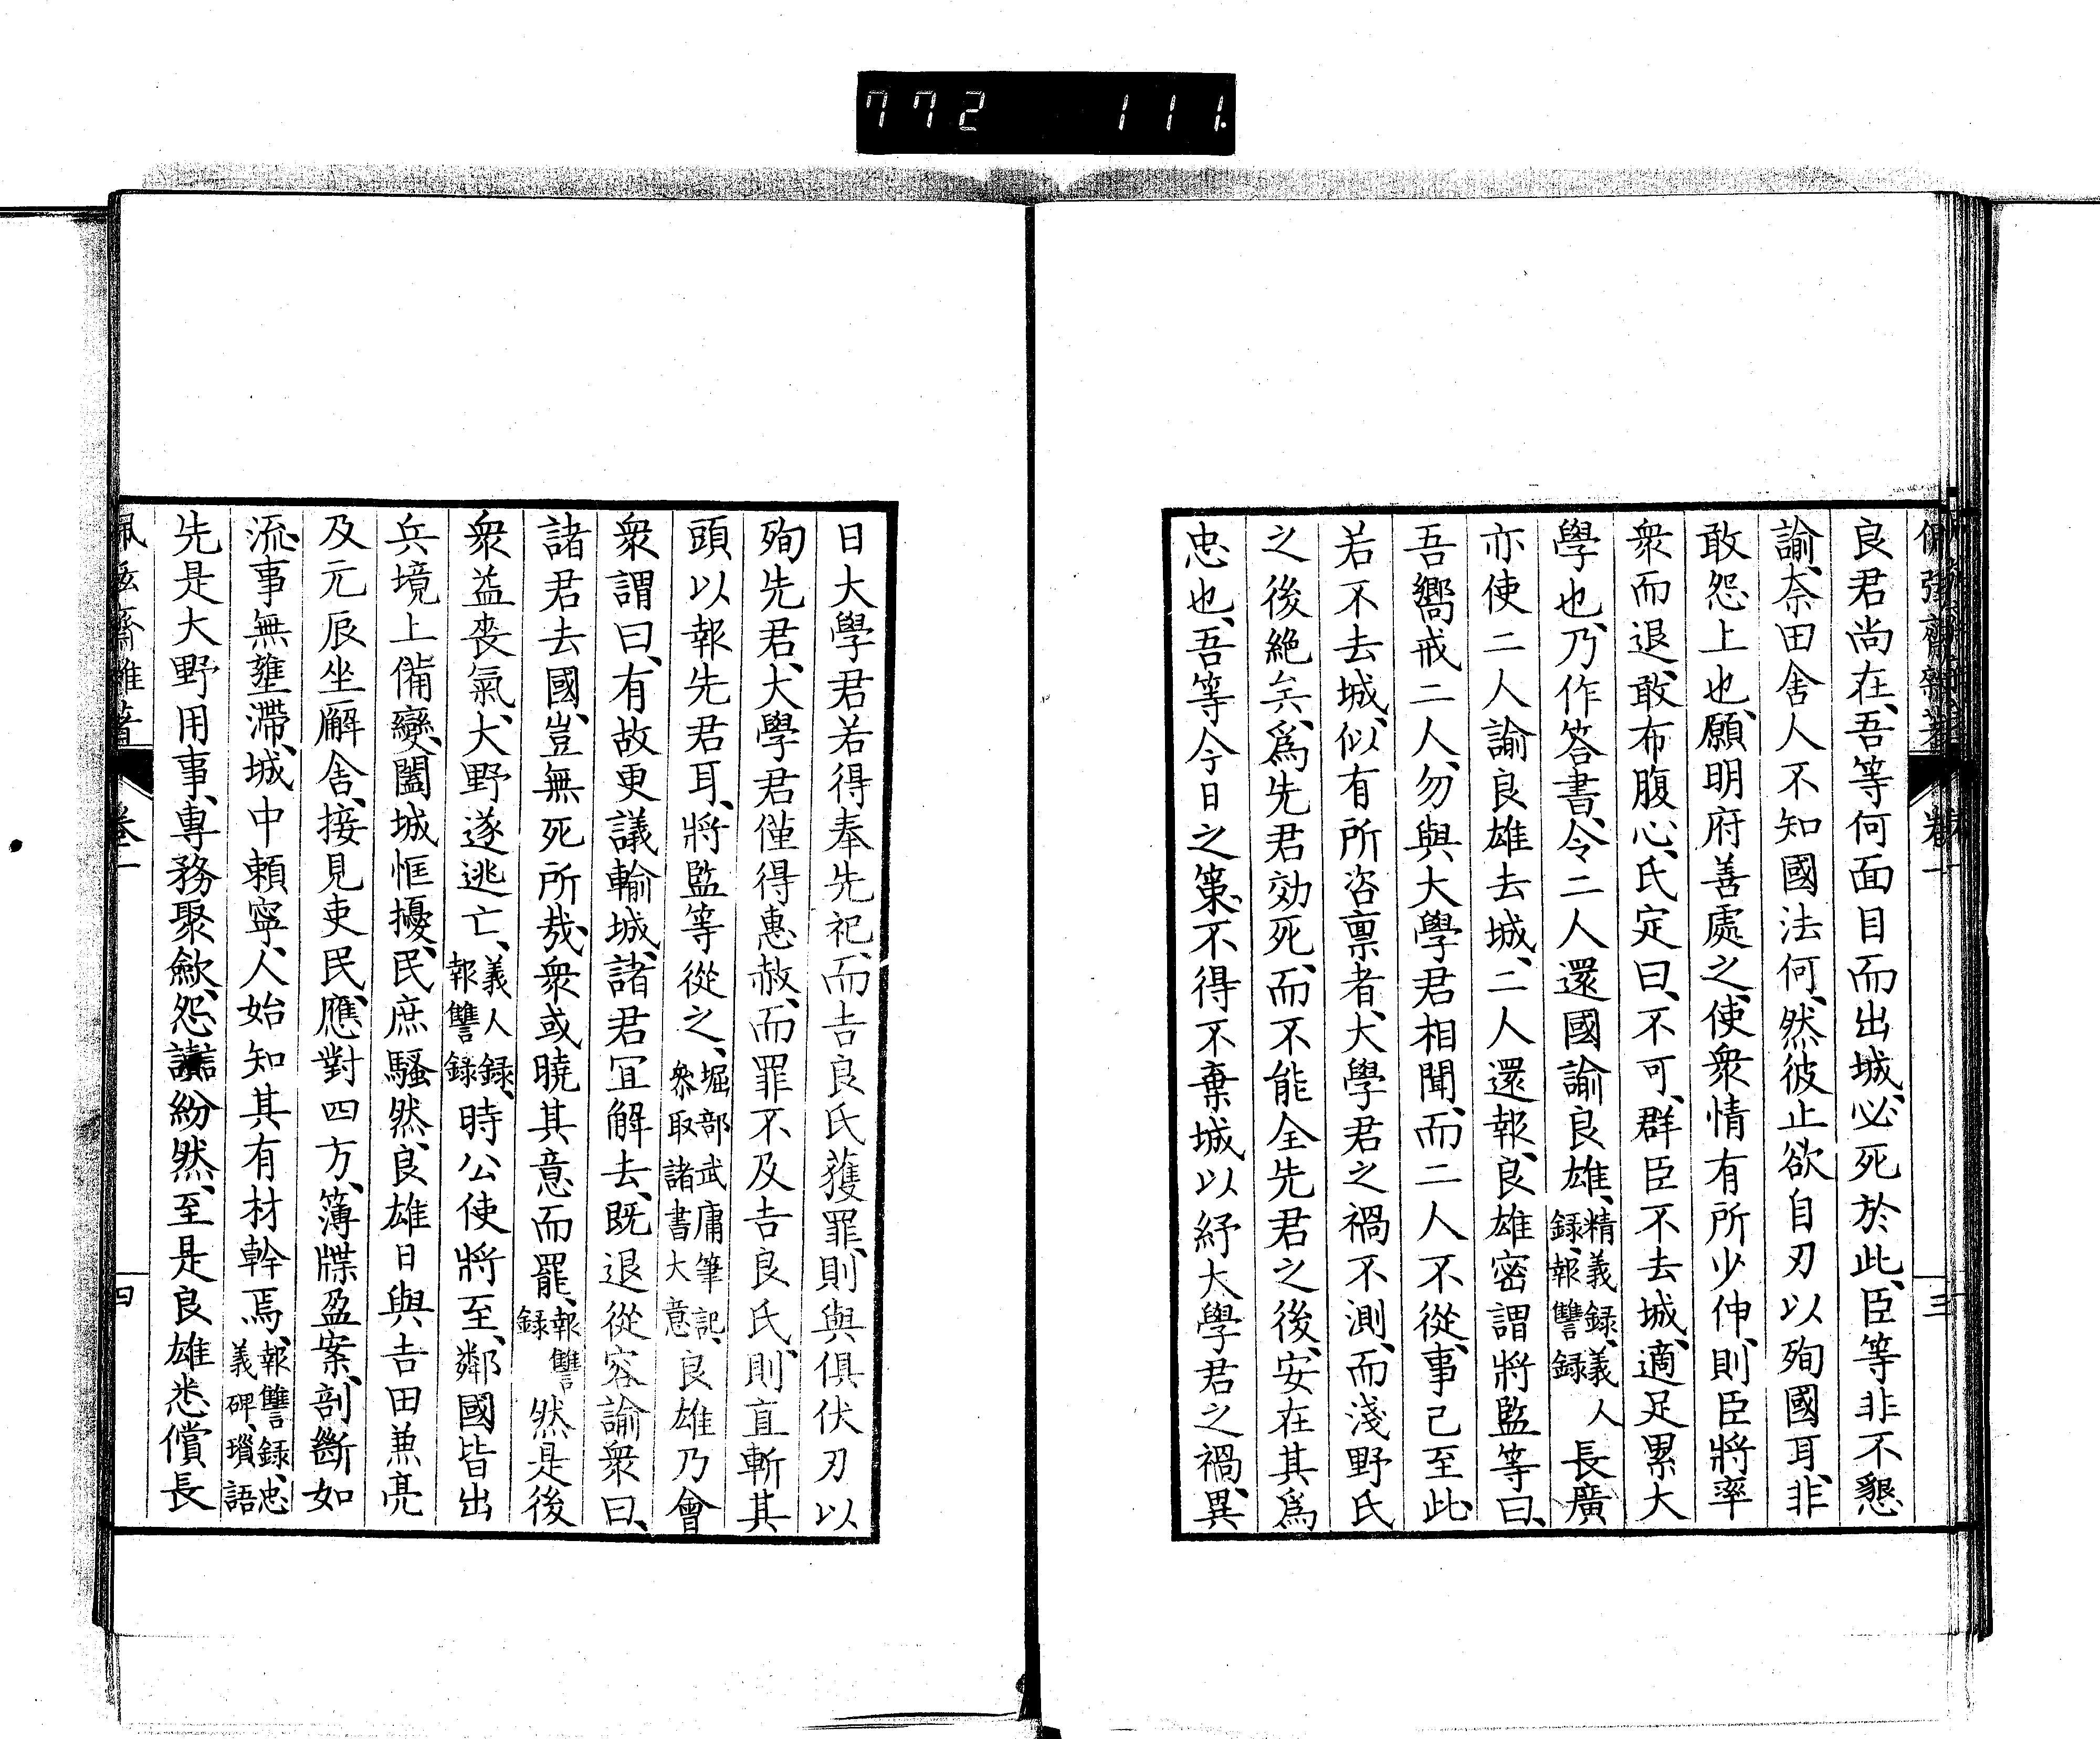 772 111.
佩弦齋雜著 卷一 三
良君尚在、吾等何面目而出城、必死於此、臣等非不懇
諭、奈田舍人不知國法何、然彼止欲自刃以殉國耳、非
敢怨上也、願明府善處之、使衆情有所少伸、則臣將率
衆而退、敢布腹心、氏定曰、不可、群臣不去城、適足累大
學也、乃作答書、令二人還國諭良雄、精義録、義人録、報讐録長廣
亦使二人諭良雄去城、二人還報、良雄密謂將監等曰、
吾嚮戒二人、勿與大學君相聞、而二人不從、事已至此、
若不去城、似有所咨稟者、大學君之禍不測、而淺野氏
之後絕矣、爲先君効死、而不能全先君之後、安在其爲
忠也、吾等今日之策、不得不棄城以紓大學君之禍、異
日大學君若得奉先祀、而吉良氏獲罪、則與俱伏刃以
殉先君、大學君僅得惠赦、而罪不及吉良氏、則直斬其
頭以報先君耳、將監等從之、堀部武庸筆記、叅取諸書大意良雄乃會
衆謂曰、有故更議輸城、諸君宜解去、既退從容諭衆曰、
諸君去國、豈無死所哉、衆或曉其意而罷、報讐録然是後
衆益喪氣、大野遂逃亡、義人録、報讐録時公使將至、鄰國皆出
兵境上備變、闔城恇擾、民庶騷然、良雄日與吉田兼亮
及元辰坐廨舍、接見吏民、應對四方、簿牒盈案、剖斷如
流、事無壅滯、城中賴寧、人始知其有材幹焉、報讐録、忠義碑、瑣語
先是大野用事、專務聚斂、怨讟紛然、至是良雄悉償長
佩弦齋雜著 卷一 四